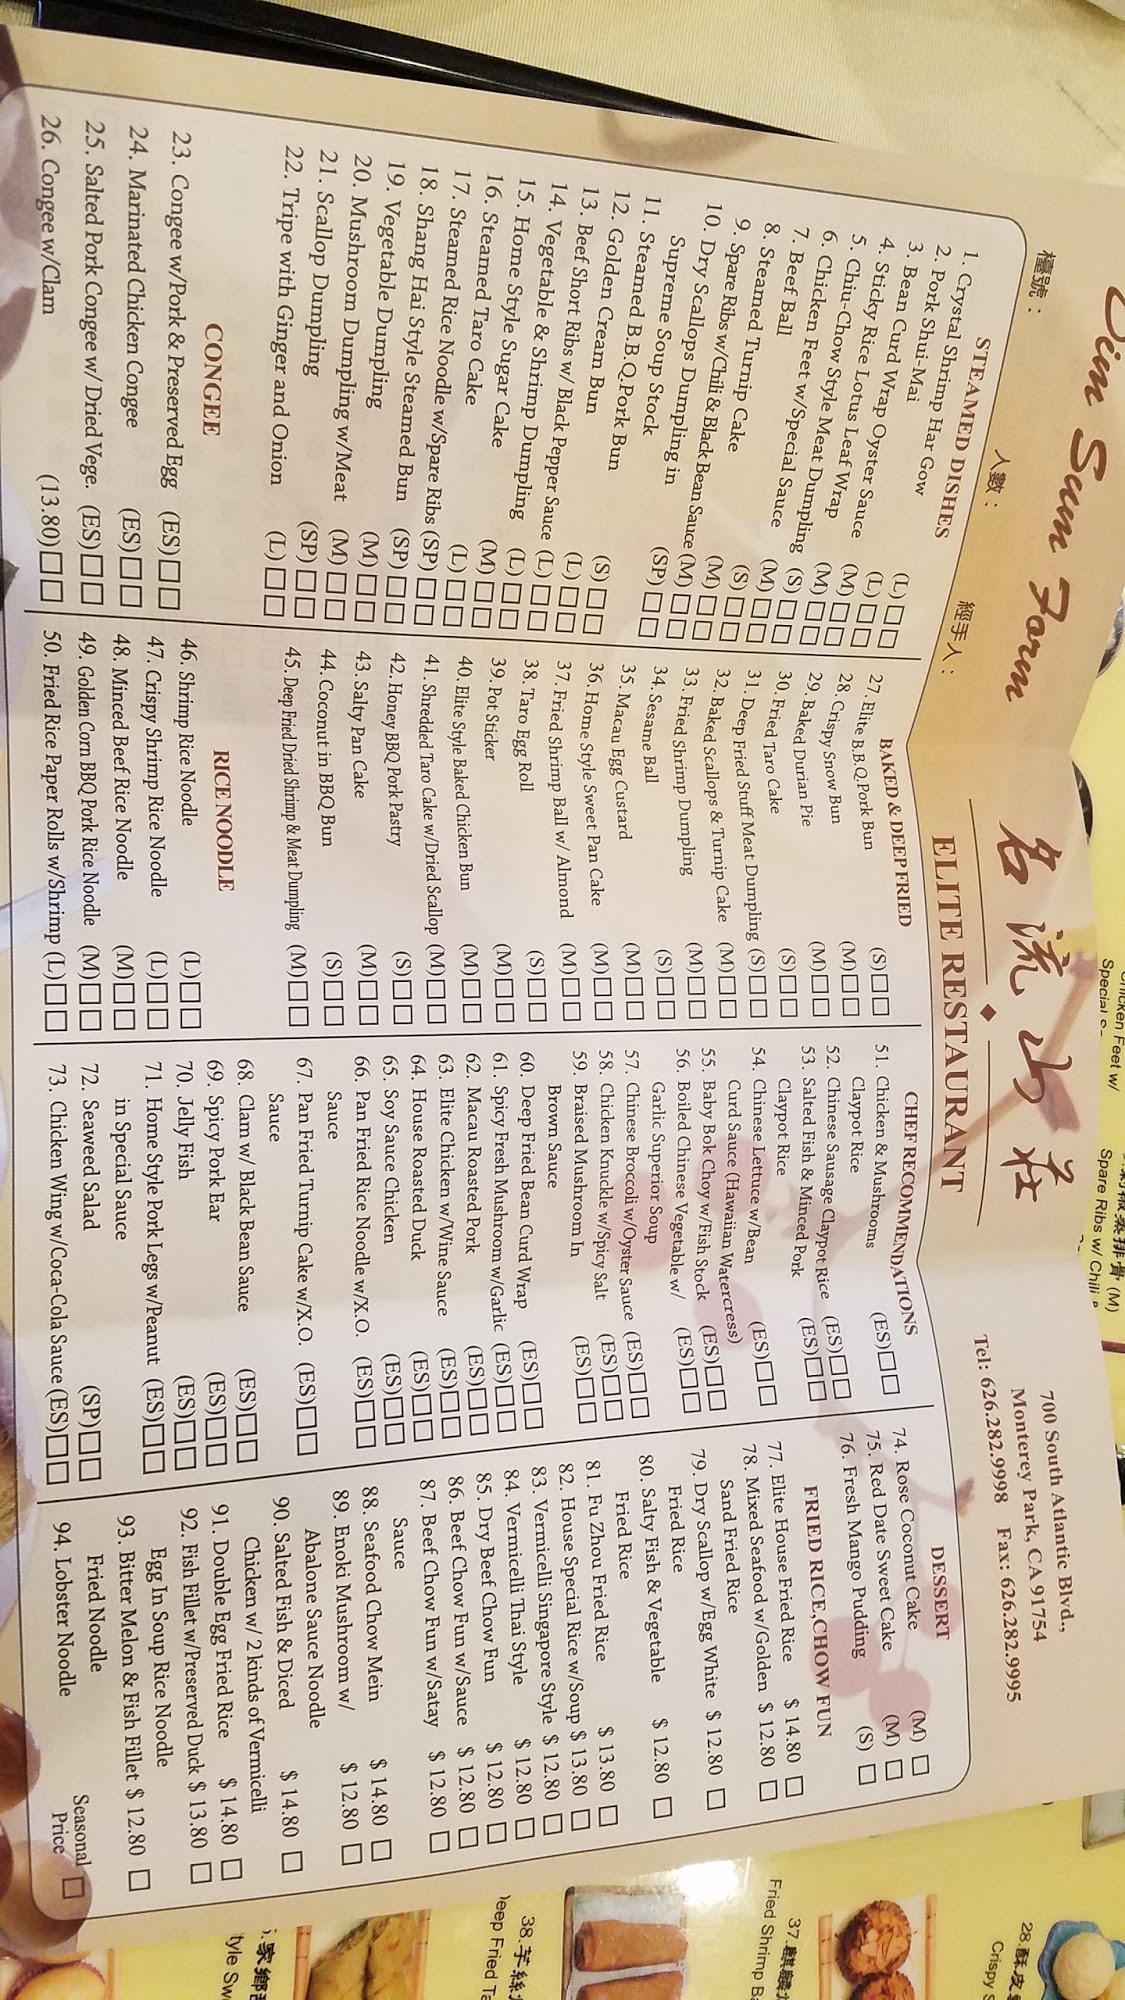 Dim Sum Form
名流山莊
ELITE RESTAURANT
700 South Atlantic Blvd.,
Monterey Park, CA 91754
Tel: 626.282.9998 Fax: 626.282.9995
檯號：
人數：
經手人：
STEAMED DISHES
1. Crystal Shrimp Har Gow (L)
2. Pork Shui-Mai (L)
3. Bean Curd Wrap Oyster Sauce (M)
4. Sticky Rice Lotus Leaf Wrap (M)
5. Chiu-Chow Style Meat Dumpling (S)
6. Chicken Feet w/Special Sauce (M)
7. Beef Ball (S)
8. Steamed Turnip Cake (M)
9. Spare Ribs w/Chili & Black Bean Sauce (M)
10. Dry Scallops Dumpling in
Supreme Soup Stock (SP)
11. Steamed B.B.Q.Pork Bun
12. Golden Cream Bun (S)
13. Beef Short Ribs w/ Black Pepper Sauce (L)
14. Vegetable & Shrimp Dumpling (L)
15. Home Style Sugar Cake (L)
16. Steamed Taro Cake (M)
17. Steamed Rice Noodle w/Spare Ribs (L)
18. Shang Hai Style Steamed Bun (SP)
19. Vegetable Dumpling (SP)
20. Mushroom Dumpling w/Meat (M)
21. Scallop Dumpling (M)
22. Tripe with Ginger and Onion (SP)
(L)
CONGEE
23. Congee w/Pork & Preserved Egg (ES)
24. Marinated Chicken Congee (ES)
25. Salted Pork Congee w/ Dried Vege. (ES)
26. Congee w/Clam (13.80)
BAKED & DEEP FRIED
27. Elite B.B.Q.Pork Bun (S)
28. Crispy Snow Bun (M)
29. Baked Durian Pie (M)
30. Fried Taro Cake (S)
31. Deep Fried Stuff Meat Dumpling (S)
32. Baked Scallops & Turnip Cake (M)
33. Fried Shrimp Dumpling (M)
34. Sesame Ball (S)
35. Macau Egg Custard (M)
36. Home Style Sweet Pan Cake (M)
37. Fried Shrimp Ball w/ Almond (M)
38. Taro Egg Roll (S)
39. Pot Sticker (M)
40. Elite Style Baked Chicken Bun (M)
41. Shredded Taro Cake w/Dried Scallop (M)
42. Honey BBQ Pork Pastry (S)
43. Salty Pan Cake (M)
44. Coconut in BBQ Bun (S)
45. Deep Fried Dried Shrimp & Meat Dumpling (M)
RICE NOODLE
46. Shrimp Rice Noodle (L)
47. Crispy Shrimp Rice Noodle (L)
48. Minced Beef Rice Noodle (M)
49. Golden Corn BBQ Pork Rice Noodle (M)
50. Fried Rice Paper Rolls w/Shrimp (L)
CHEF RECOMMENDATIONS
51. Chicken & Mushrooms
Claypot Rice (ES)
52. Chinese Sausage Claypot Rice (ES)
53. Salted Fish & Minced Pork
Claypot Rice (ES)
54. Chinese Lettuce w/Bean
Curd Sauce (Hawaiian Watercress) (ES)
55. Baby Bok Choy w/Fish Stock (ES)
56. Boiled Chinese Vegetable w/
Garlic Superior Soup (ES)
57. Chinese Broccoli w/Oyster Sauce (ES)
58. Chicken Knuckle w/Spicy Salt (ES)
59. Braised Mushroom In
Brown Sauce (ES)
60. Deep Fried Bean Curd Wrap (ES)
61. Spicy Fresh Mushroom w/Garlic (ES)
62. Macau Roasted Pork (ES)
63. Elite Chicken w/Wine Sauce (ES)
64. House Roasted Duck (ES)
65. Soy Sauce Chicken (ES)
66. Pan Fried Rice Noodle w/X.O.
Sauce (ES)
67. Pan Fried Turnip Cake w/X.O.
Sauce (ES)
68. Clam w/ Black Bean Sauce (ES)
69. Spicy Pork Ear (ES)
70. Jelly Fish (ES)
71. Home Style Pork Legs w/Peanut
in Special Sauce (ES)
72. Seaweed Salad (SP)
73. Chicken Wing w/Coca-Cola Sauce (ES)
DESSERT
74. Rose Coconut Cake (M)
75. Red Date Sweet Cake (M)
76. Fresh Mango Pudding (S)
FRIED RICE,CHOW FUN
77. Elite House Fried Rice $ 14.80
78. Mixed Seafood w/Golden
Sand Fried Rice $ 12.80
79. Dry Scallop w/Egg White
Fried Rice $ 12.80
80. Salty Fish & Vegetable
Fried Rice $ 12.80
81. Fu Zhou Fried Rice $ 13.80
82. House Special Rice w/Soup $ 13.80
83. Vermicelli Singapore Style $ 12.80
84. Vermicelli Thai Style $ 12.80
85. Dry Beef Chow Fun $ 12.80
86. Beef Chow Fun w/Sauce $ 12.80
87. Beef Chow Fun w/Satay
Sauce $ 12.80
88. Seafood Chow Mein $ 14.80
89. Enoki Mushroom w/
Abalone Sauce Noodle $ 12.80
90. Salted Fish & Diced
Chicken w/ 2 kinds of Vermicelli $ 14.80
91. Double Egg Fried Rice $ 14.80
92. Fish Fillet w/Preserved Duck
Egg In Soup Rice Noodle $ 13.80
93. Bitter Melon & Fish Fillet
Fried Noodle $ 12.80
94. Lobster Noodle Seasonal
Price
Chicken Feet w/
Spare Ribs w/ Chili
排骨 (M)
28.酥皮
Crispy S
37.麒麟
Fried Shrimp Ba
38.芋絲
eep Fried Ta
家鄉
tyle Sw